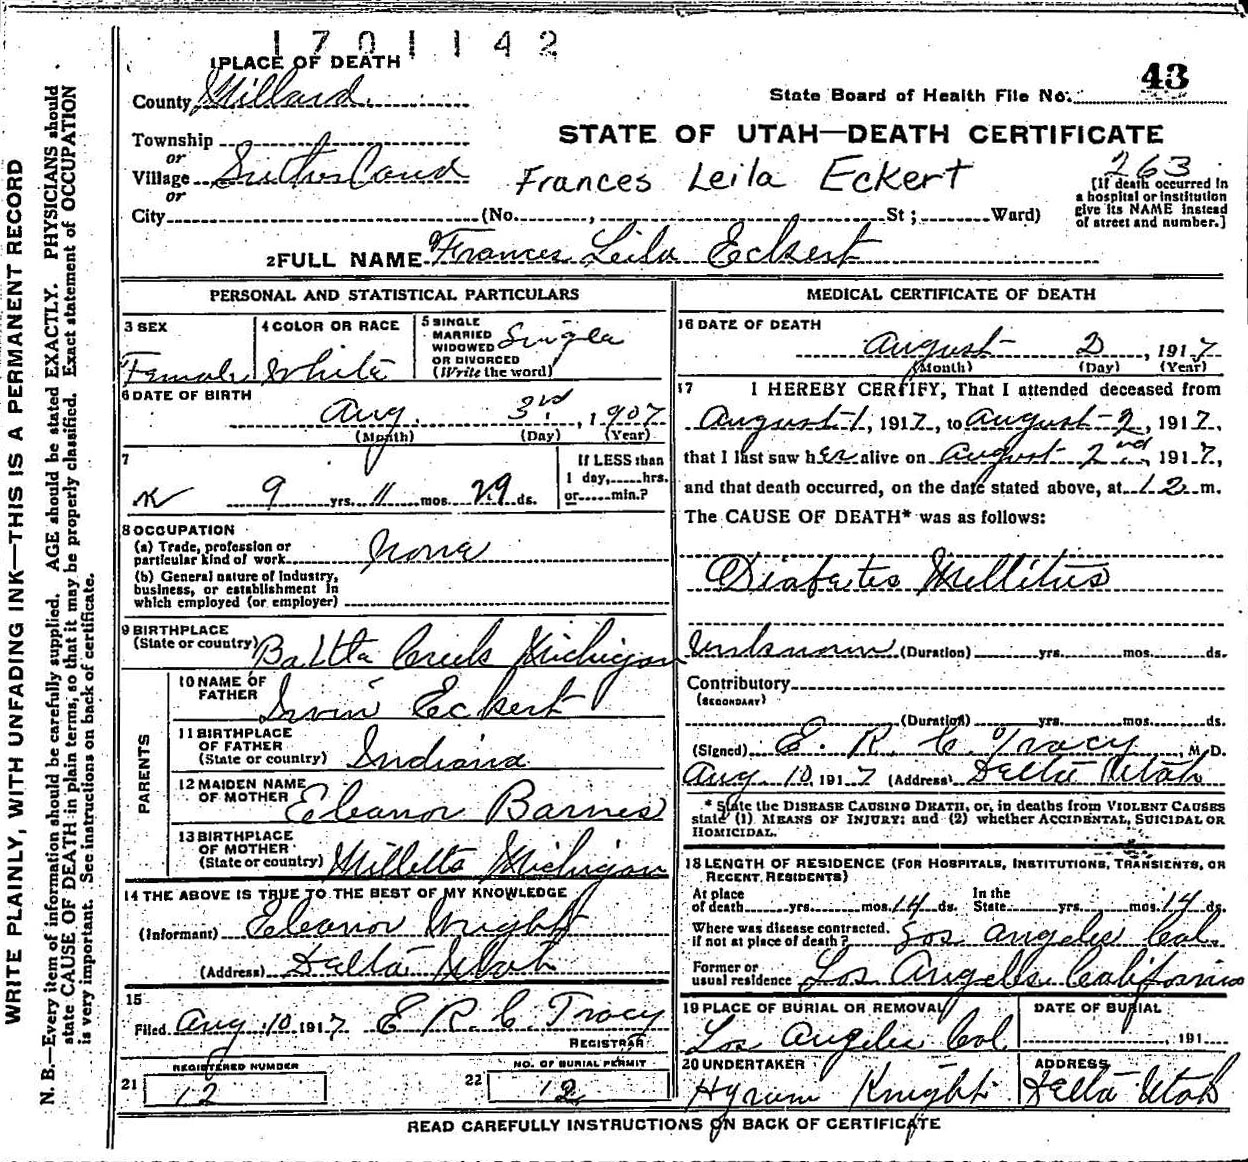 1701142
1 PLACE OF DEATH
County Millard
43
State Board of Health File No.
Township
or
Village Sutherland
or
City (No. , St ; Ward)
STATE OF UTAH—DEATH CERTIFICATE
Frances Leila Eckert
263
[If death occurred in
a hospital or institution
give its NAME instead
of street and number.]
2 FULL NAME Frances Leila Eckert
PERSONAL AND STATISTICAL PARTICULARS
3 SEX
Female
4 COLOR OR RACE
White
5 SINGLE
MARRIED
WIDOWED
OR DIVORCED
(Write the word)
Single
6 DATE OF BIRTH
Aug. 3rd, 1907
(Month) (Day) (Year)
7
9 yrs. 11 mos. 29 ds.
If LESS than
1 day, hrs.
or min.?
8 OCCUPATION
(a) Trade, profession or
particular kind of work None
(b) General nature of Industry,
business, or establishment in
which employed (or employer)
9 BIRTHPLACE
(State or country) Battle Creek Michigan
PARENTS
10 NAME OF
FATHER Irvin Eckert
11 BIRTHPLACE
OF FATHER
(State or country) Indiana
12 MAIDEN NAME
OF MOTHER Eleanor Barnes
13 BIRTHPLACE
OF MOTHER
(State or country) Milletts Michigan
14 THE ABOVE IS TRUE TO THE BEST OF MY KNOWLEDGE
(Informant) Eleanor Wright
(Address) Delta Utah
15
Filed Aug. 10 1917 E. R. C. Tracy
REGISTRAR
REGISTERED NUMBER
21 12
NO. OF BURIAL PERMIT
22 12
MEDICAL CERTIFICATE OF DEATH
16 DATE OF DEATH
August 2, 1917
(Month) (Day) (Year)
17 I HEREBY CERTIFY, That I attended deceased from
August 1, 1917, to August 2, 1917,
that I last saw her alive on August 2nd, 1917,
and that death occurred, on the date stated above, at 12 m.
The CAUSE OF DEATH* was as follows:
Diabetes Mellitus
Unknown (Duration) yrs. mos. ds.
Contributory
(SECONDARY)
(Duration) yrs. mos. ds.
(Signed) E. R. C. Tracy, M. D.
Aug 10, 1917 (Address) Delta Utah
* State the DISEASE CAUSING DEATH, or, in deaths from VIOLENT CAUSES
state (1) MEANS OF INJURY; and (2) whether ACCIDENTAL, SUICIDAL OR
HOMICIDAL.
18 LENGTH OF RESIDENCE (FOR HOSPITALS, INSTITUTIONS, TRANSIENTS, OR
RECENT RESIDENTS)
At place
of death yrs. mos. 14 ds.
In the
State yrs. mos. 14 ds.
Where was disease contracted,
if not at place of death? Los Angeles Cal.
Former or
usual residence Los Angeles California
19 PLACE OF BURIAL OR REMOVAL
Los Angeles Cal
DATE OF BURIAL
191
20 UNDERTAKER
Hyrum Knight
ADDRESS
Delta Utah
READ CAREFULLY INSTRUCTIONS ON BACK OF CERTIFICATE
WRITE PLAINLY, WITH UNFADING INK—THIS IS A PERMANENT RECORD
N. B.—Every item of information should be carefully supplied. AGE should be stated EXACTLY. PHYSICIANS should
state CAUSE OF DEATH in plain terms, so that it may be properly classified. Exact statement of OCCUPATION
is very important. See instructions on back of certificate.